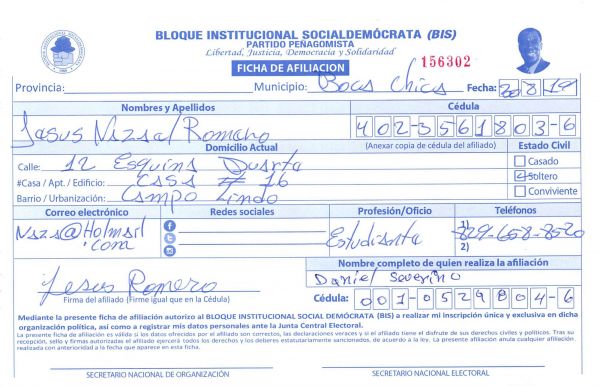 BLOQUE INSTITUCIONAL SOCIALDEMÓCRATA (BIS)
PARTIDO PEÑAGOMISTA
Libertad, Justicia, Democracia y Solidaridad
FICHA DE AFILIACION
156302
Provincia: Municipio: Boca Chica Fecha: 20 8 19
Nombres y Apellidos Cédula
Jesus Nazal Romero 402-3561803-6
Domicilio Actual (Anexar copia de cédula del afiliado) Estado Civil
Calle: 12 Esquina Duarte Casado
#Casa / Apt. / Edificio: Casa # 16 Soltero
Barrio / Urbanización: Campo Lindo Conviviente
Correo electrónico Redes sociales Profesión/Oficio Teléfonos
Naza@Hotmail Estudiante 1) 829-658-8520
.com 2)
Nombre completo de quien realiza la afiliación
Jesus Romero Daniel Severino
Firma del afiliado (Firme igual que en la Cédula) Cédula: 001-0529804-6
Mediante la presente ficha de afiliación autorizo al BLOQUE INSTITUCIONAL SOCIAL DEMÓCRATA (BIS) a realizar mi inscripción única y exclusiva en dicha
organización política, así como a registrar mis datos personales ante la Junta Central Electoral.
La presente ficha de afiliación es válida si los datos ofrecidos por el afiliado son correctos, las declaraciones veraces y si el afiliado tiene el disfrute de sus derechos civiles y políticos. Tras su
recepción, sello y firmas autorizadas el afiliado ejercerá todos los derechos y los deberes estatutariamente sancionados, de acuerdo a la ley. La presente afiliación anula cualquier afiliación
realizada con anterioridad a la fecha que aparece en esta ficha.
SECRETARIO NACIONAL DE ORGANIZACIÓN SECRETARIO NACIONAL ELECTORAL